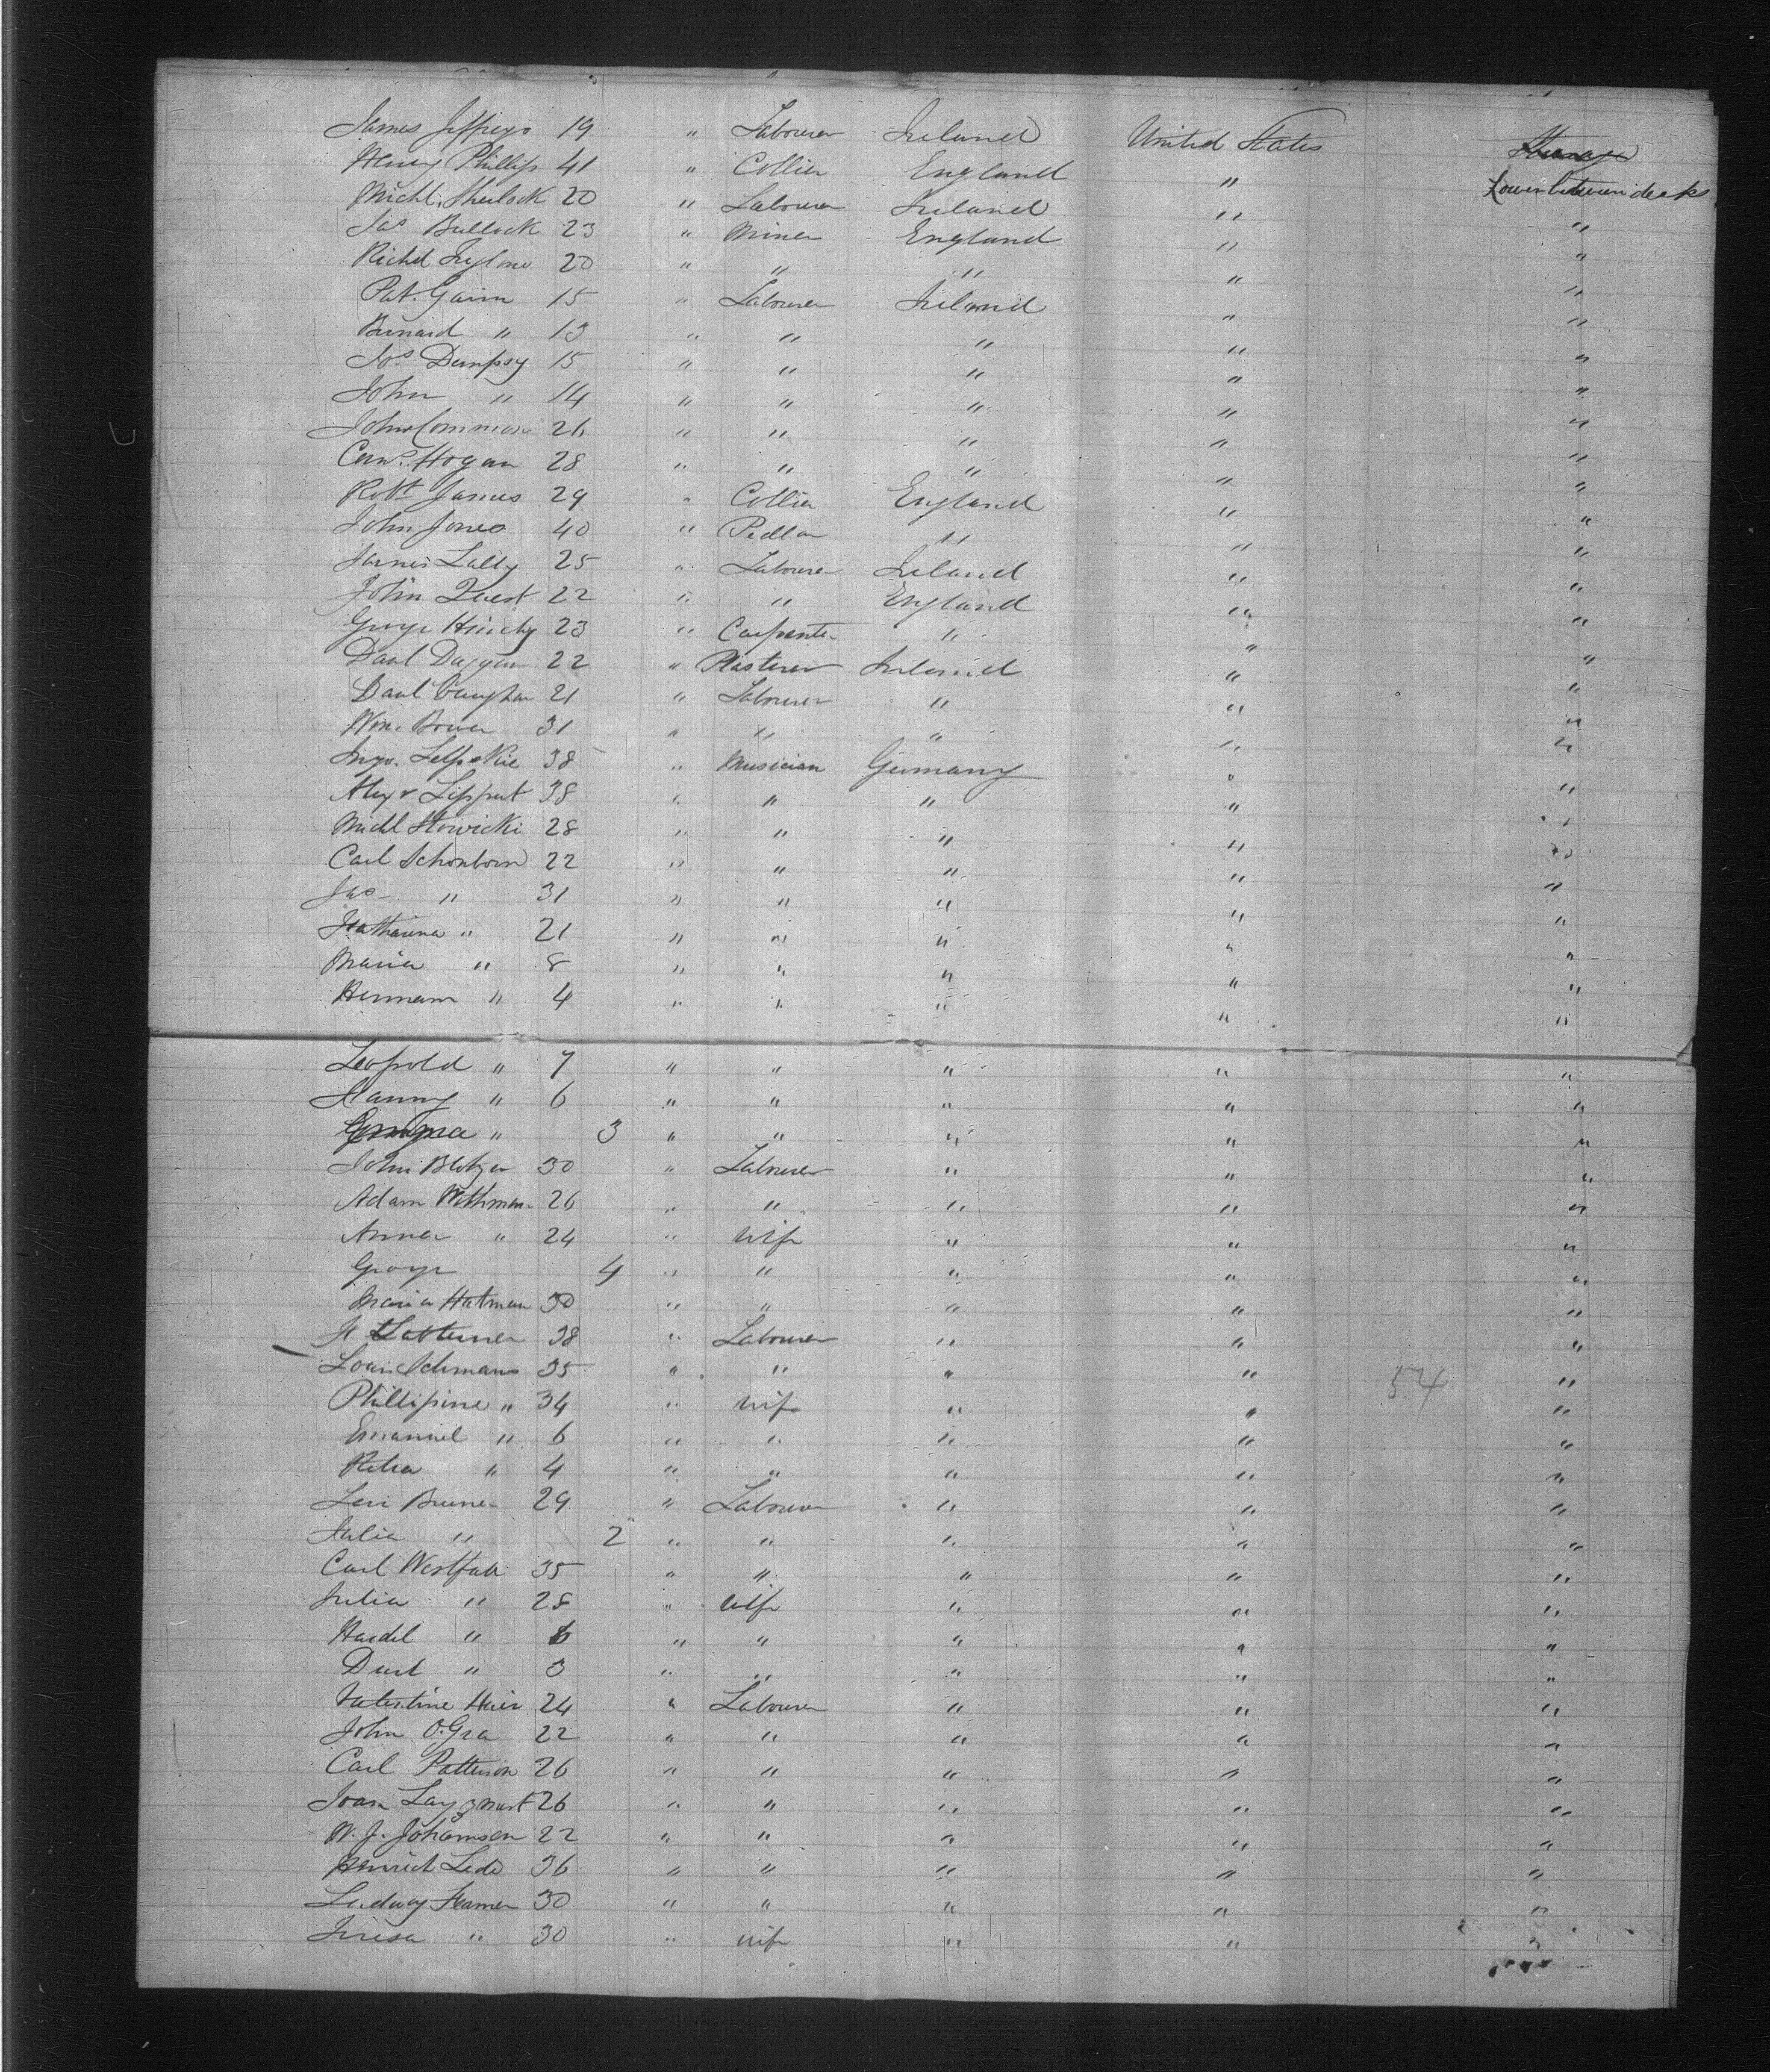 James Jeffreys 19 " Labourer Ireland United States Steerage
Henry Phillips 41 " Collier England " Lower between decks
Michl. Sherlock 20 " Labourer Ireland " "
Jas Bullock 23 " Miner England " "
Richd 20 " " " " "
Pat. Gavin 15 " Labourer Ireland " "
Bernard " 13 " " " " "
Jos Dempsy 15 " " " " "
John " 14 " " " " "
John Common 26 " " " " "
Corns. Hogan 28 " " " " "
Robt James 29 " Collier England " "
John Jones 40 " Pedlar " " "
James Lally 25 " Labourer Ireland " "
John 22 " " England " "
George 23 " Carpenter " " "
Danl Duggan 22 " Plasterer Ireland " "
Danl Vaughan 21 " Labourer " " "
Wm. Bower 31 " " " " "
38 " Musician Germany " "
Alexr Lippert 38 " " " " "
Michl 28 " " " " "
Carl Schonborn 22 " " " " "
Jas " 31 " " " " "
Katharina " 21 " " " " "
Maria " 8 " " " " "
Hermann " 4 " " " " "
Leopold " 7 " " " " "
Hanny " 6 " " " " "
Emma " 3 " " " " "
John 30 " Labourer " " "
Adam Wothman 26 " " " " "
Anna " 24 " Wife " " "
George 4 " " " " "
Maria Hatman 30 " " " " "
38 " Labourer " " "
Louis Schmans 35 " " " 54 "
Phillipine " 34 " wife " " "
Emanuel " 6 " " " " "
" 4 " " " " "
Levi Bruner 29 " Labourer " " "
Julia " 2 " " " " "
Carl Westfall 35 " " " " "
Julia " 28 " Wife " " "
" 6 " " " " "
" 3 " " " " "
Valentine Heir 24 " Labourer " " "
John O.Gra 22 " " " " "
Carl Patterson 26 " " " " "
26 " " " " "
W. J. Johannsen 22 " " " " "
Heinrich Lede 36 " " " " "
Ludwig Kramer 30 " " " " "
" 30 " wife " " "